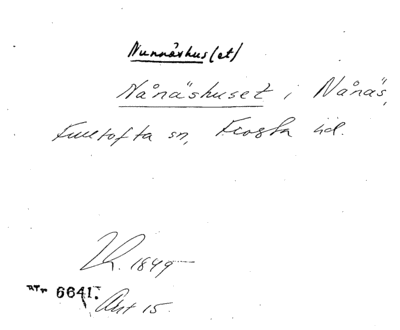 Nunnäshus(et)
Nånäshuset i Nånäs,
Fulltofta sn, Frosta hd.
1849
6641.
15.